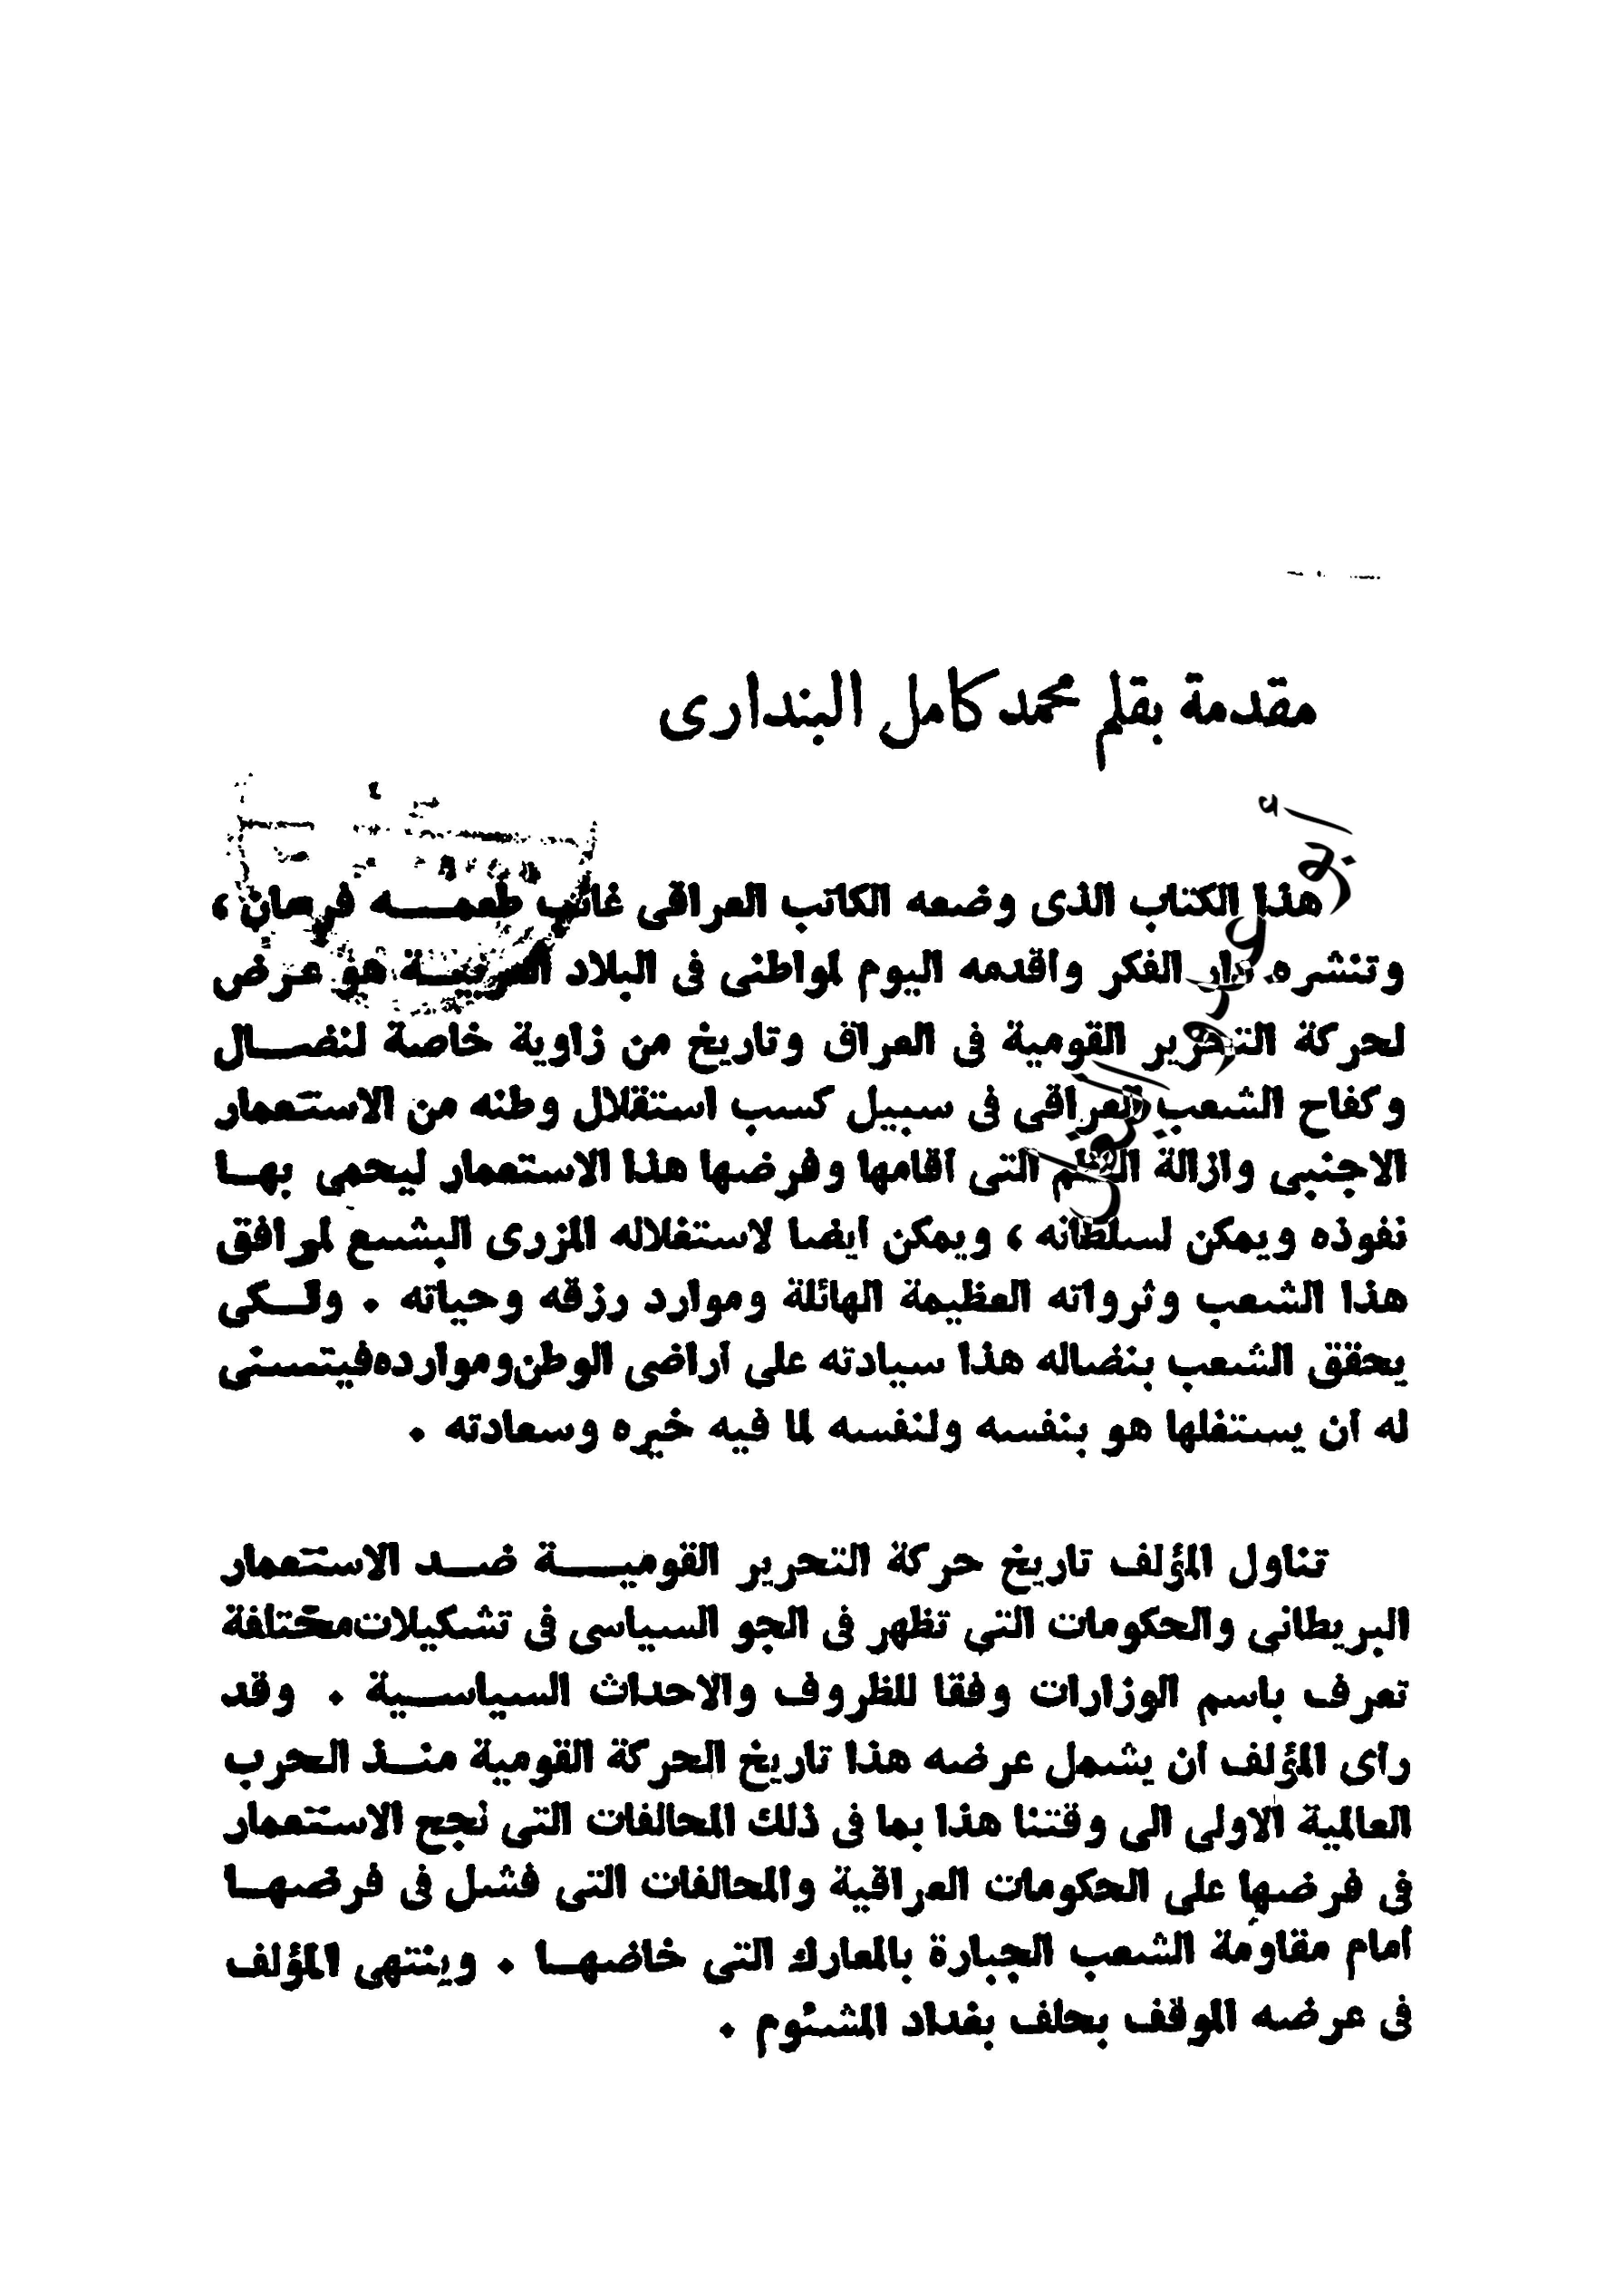 مقدمة بقلم محمد كامل البندارى
هذا الكتاب الذى وضعه الكاتب العراقى غائب طعمـــه فرمان ،
وتنشره دار الفكر واقدمه اليوم لمواطنى فى البلاد العربيـــة هو عرض
لحركة التحرير القومية فى العراق وتاريخ من زاوية خاصة لنضـــال
وكفاح الشعب العراقى فى سبيل كسب استقلال وطنه من الاستعمار
الاجنبى وازالة النظم التى اقامها وفرضها هذا الاستعمار ليحمى بهــا
نفوذه ويمكن لسلطانه ، ويمكن ايضا لاستغلاله المزرى البشع لمرافق
هذا الشعب وثرواته العظيمة الهائلة وموارد رزقه وحياته . ولــكى
يحقق الشعب بنضاله هذا سيادته على اراضى الوطن وموارده فيتسنى
له ان يستغلها هو بنفسه ولنفسه لما فيه خيره وسعادته .
تناول المؤلف تاريخ حركة التحرير القوميـــة ضــد الاستعمار
البريطانى والحكومات التى تظهر فى الجو السياسى فى تشكيلات مختلفة
تعرف باسم الوزارات وفقا للظروف والاحداث السياســية . وقد
رأى المؤلف ان يشمل عرضه هذا تاريخ الحركة القومية منــذ الحرب
العالمية الاولى الى وقتنا هذا بما فى ذلك المحالفات التى نجح الاستعمار
فى فرضها على الحكومات العراقية والمحالفات التى فشل فى فرضهــا
امام مقاومة الشعب الجبارة بالمعارك التى خاضهــا . وينتهى المؤلف
فى عرضه الموقف بحلف بغداد المشئوم .